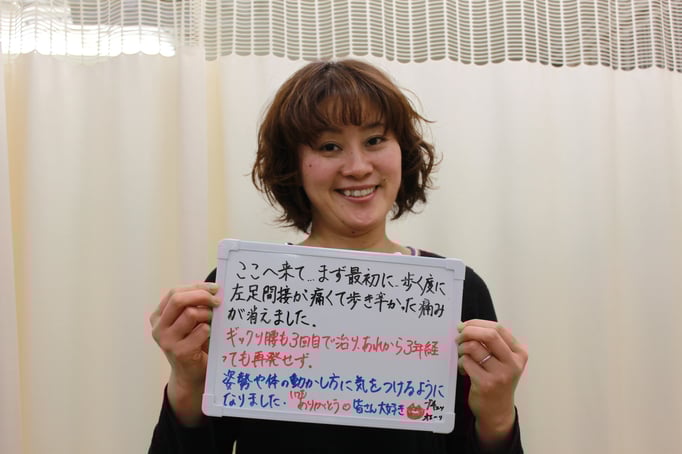 ここへ来て…まず最初に、歩く度に
左足間接が痛くて歩き辛かった痛み
が消えました。
ギックリ腰も3回目で治り、あれから3年経
っても再発せず。
姿勢や体の動かし方に気をつけるように
なりました。いつもありがとう♡皆さん大好き